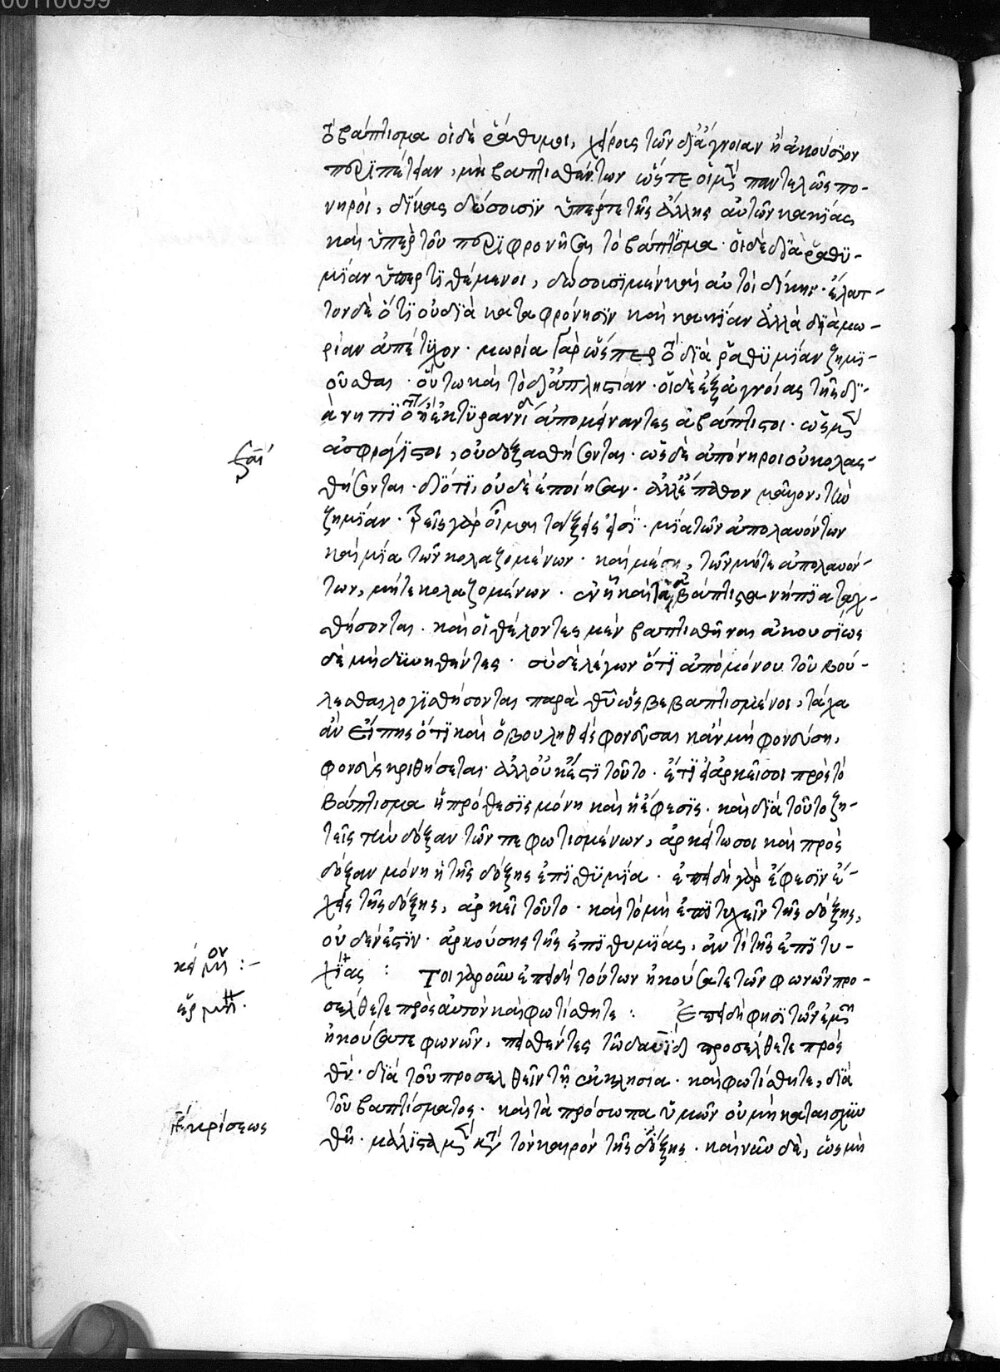 00110099
βάπτισμα οἱ δὲ ῥάθυμοι, χείρους τῶν δι' ἄγνοιαν ἢ ἀκούσϊον
μὴ βαπτισθέντων ὥστε οἱ μ(ὲν) παντελῶς πο-
νηροὶ, δίκας δώσουσϊν ὑπέρ τε τῆς ἄλλης αὐτῶν κακίας
καὶ ὑπὲρ τοῦ περϊφρονῆσαι τὸ βάπτϊσμα· οἱ δὲ δϊὰ ῥαθϋ-
μίαν ὑπερτϊθέμενοι, δώσουσϊ μὲν καὶ αὐτοὶ δίκην· ἔλατ-
τον δὲ ὅτϊ οὐ δϊὰ καταφρόνησϊν καὶ κακίαν ἀλλὰ δϊὰ μω-
ρίαν ἀπέτϋχον· μωρία γὰρ ὥσπερ τὸ διὰ ῥαθϋμίαν ζημϊ-
οῦσθαι· οὕτω καὶ τὸ δι' ἀπληστίαν· οἱ δὲ ἐξ ἀγνοίας τῆς δϊ-
ἀπομείναντες ἀβάπτιστοι· ὡς μ(ὲν)
ἀσφράγϊστοι, οὐ δοξασθήσονται· ὡς δὲ ἀπόνηροι οὐ κολασ-
θήσονται· διότϊ, οὐδὲ ἐποίησαν· ἀλλ' ἔπαθον μᾶλλον, τὴν
ζημίαν· τρεῖς γὰρ μία τῶν ἀπολαυόντων
καὶ μία τῶν κολαζομένων· καὶ μέση, τῶν μήτε ἀπολαυόν-
των, μήτε κολαζομένων· ἐν ἧ καὶ τὰ ἀβάπτιστα νήπϊα ταχ-
θήσονται· καὶ οἱ θέλοντες μὲν βαπτισθῆναι ἀκουσίως
δὲ μὴ δϋνηθέντες· σὺ δὲ λέγων ὅτϊ ἀπὸ μόνου τοῦ βού-
λεσθαι λογϊσθήσονται παρὰ θ(εο)ῦ ὡς βεβαπτισμένοι, τάχα
ἂν εἴπῃς ὅτϊ καὶ ὁ βουληθεὶς φονεῦσαι κἂν μὴ φονεύσῃ,
φονεὺς κριθήσεται· ἀλλ' οὐκ ἔστϊ τοῦτο· ἔτϊ εἰ ἀρκεῖ σοι πρὸς τὸ
βάπτισμα ἡ πρόθεσϊς μόνη καὶ ἡ ἔφεσϊς· καὶ διὰ τοῦτο ζη-
τεῖς τὴν δόξαν τῶν πεφωτισμένων, ἀρκείτω σοι καὶ πρὸς
δόξαν μόνη ἡ τῆς δόξης ἐπϊθϋμία· ἐπειδὴ γὰρ ἔφεσϊν ἔ-
χεις τῆς δόξης, ἀρκεῖ τοῦτο· καὶ τὸ μὴ ἐπιτυχεῖν τῆς δόξης,
οὐδέν ἐστϊν· ἀρκούσης τῆς ἐπϊθυμίας, ἀντὶ τῆς ἐπϊτυ-
χίας : Τοιγαροῦν ἐπειδὴ τούτων ἠκούσατε τῶν φωνῶν προ-
σέλθετε πρὸς αὐτὸν καὶ φωτίσθητε : Ἐπειδή φησι τῶν ἐμῶν
ἠκούσατε φωνῶν, πεισθέντες τῶ δαυῒδ προσέλθετε πρὸς
θ(εό)ν· διὰ τοῦ προσελθεῖν τῆ ἐκκλησία· καὶ φωτίσθητε, διὰ
τοῦ βαπτίσματος· καὶ τὰ πρόσωπα ὑμῶν οὐ μὴ καταισχυν-
θῆ· μάλιστα μ(ὲν) κ(α)τ(ὰ) τὸν καιρὸν τῆς δόξης· καὶ νῦν δὲ, ὡς μὴ
κείμ(εν)ον :-
ἑρμη(νεία)·
κρίσεως